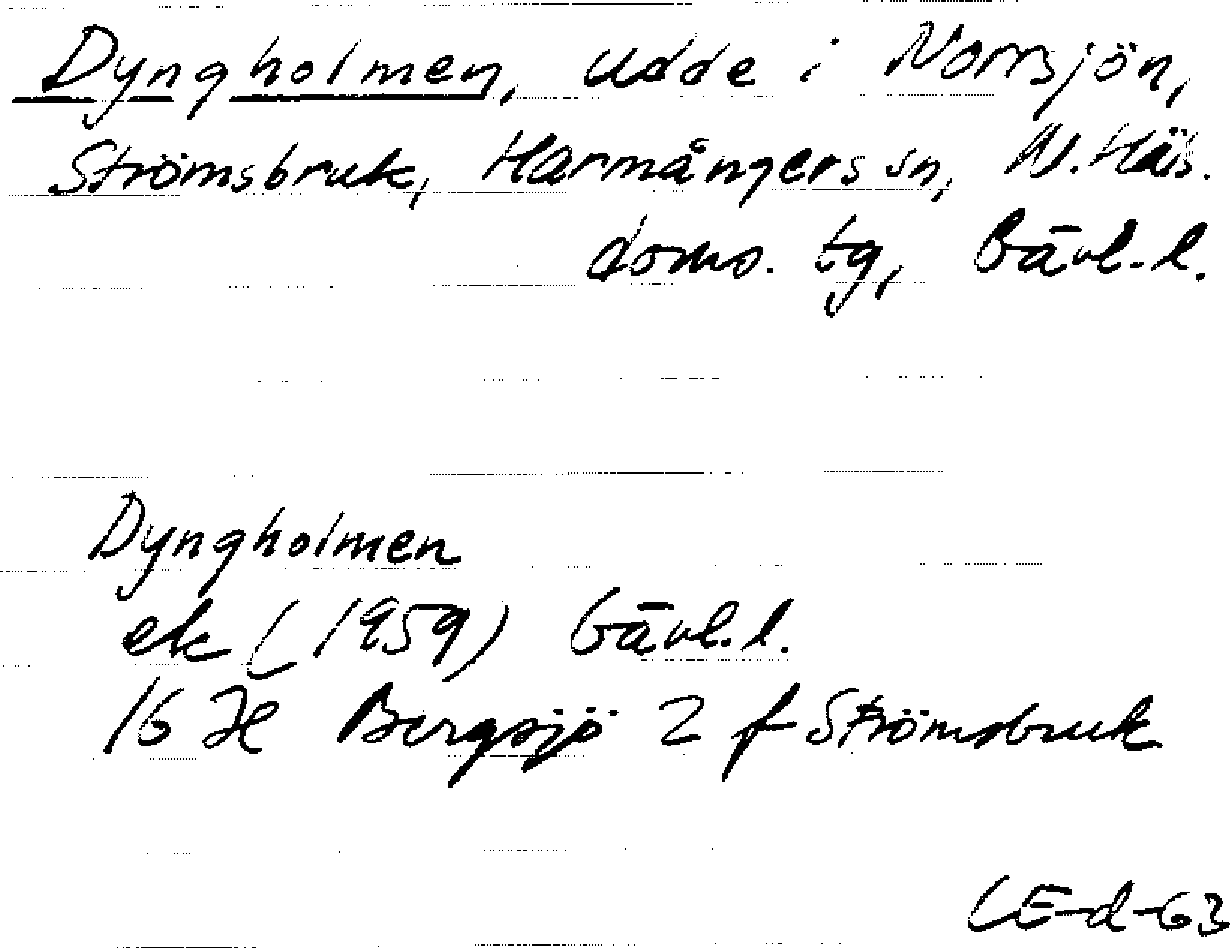 Dyngholmen, udde i Norrsjön,
Strömsbruk, Harmångers sn, N. Häls.
doms. tg, Gävl. l.
Dyngholmen
ek (1959) Gävl. l.
16 H Bergsjö 2 f Strömsbruk